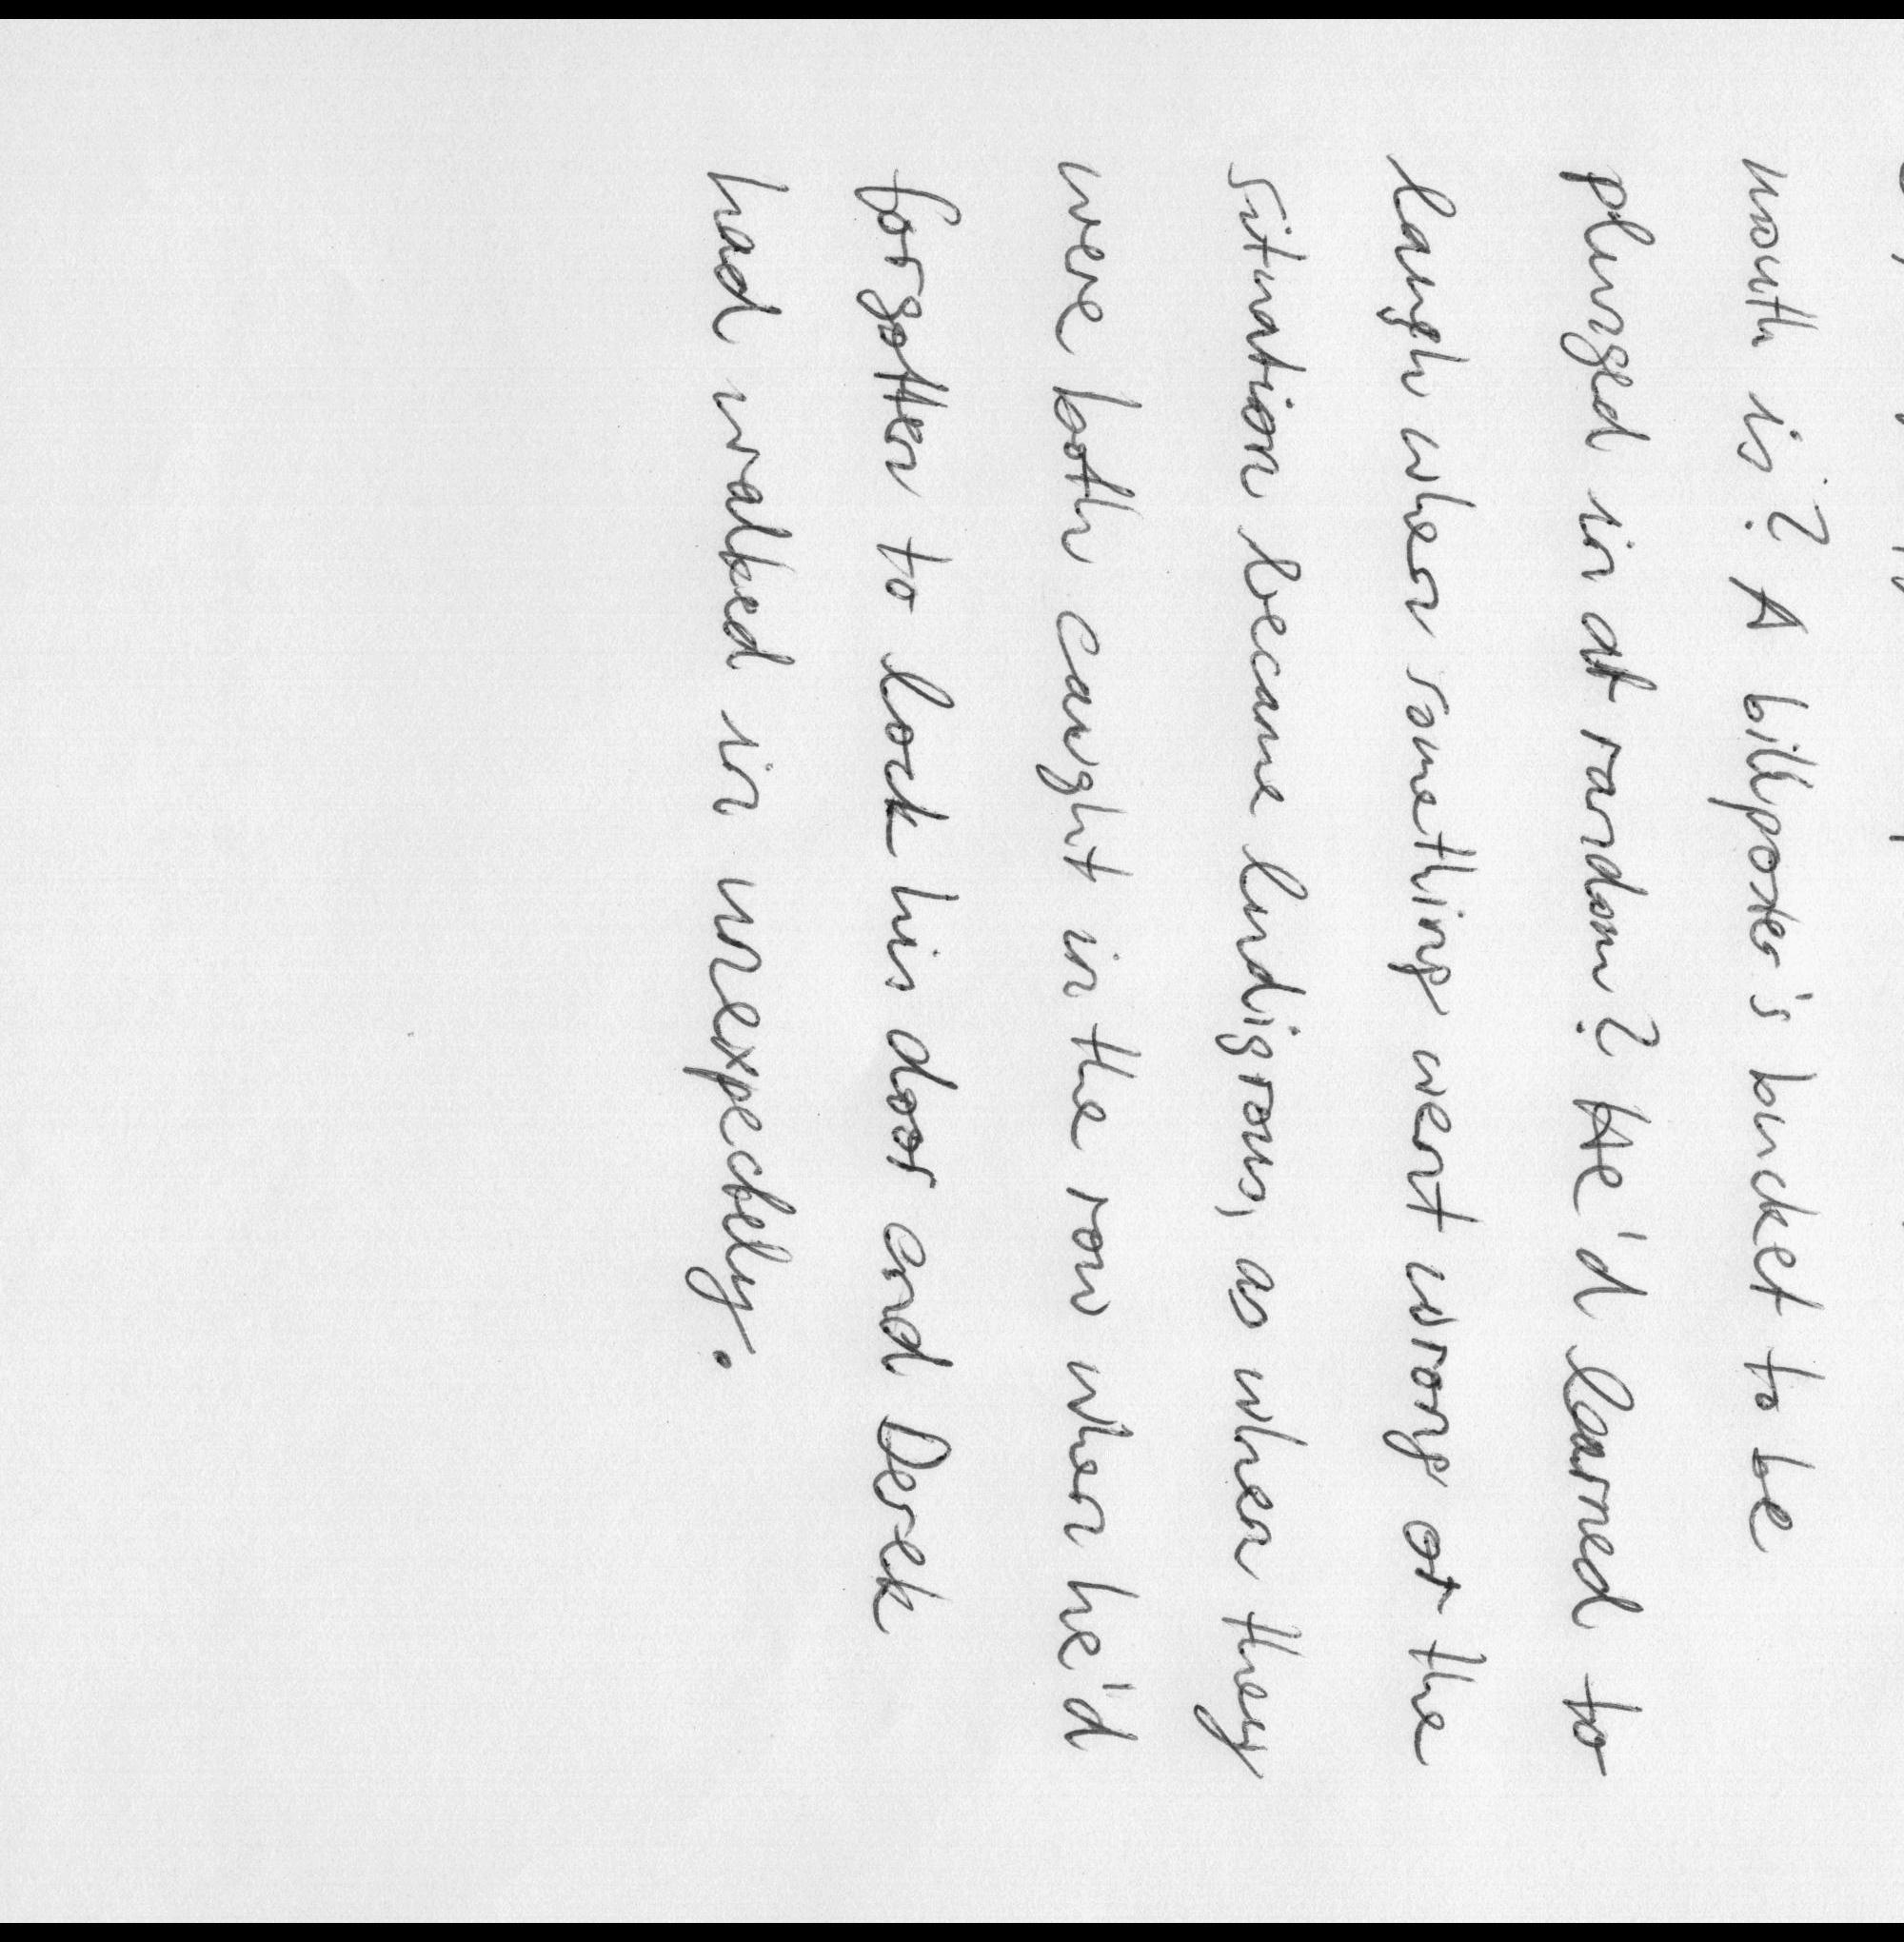 mouth is? A billposter's bucket to be
plunged in at random? He'd learned to
laugh when something went wrong or the
situation became ludigrous, as when they
were both caught in the row when he'd
forgotten to lock his door and Derek
had walked in unexpectely.